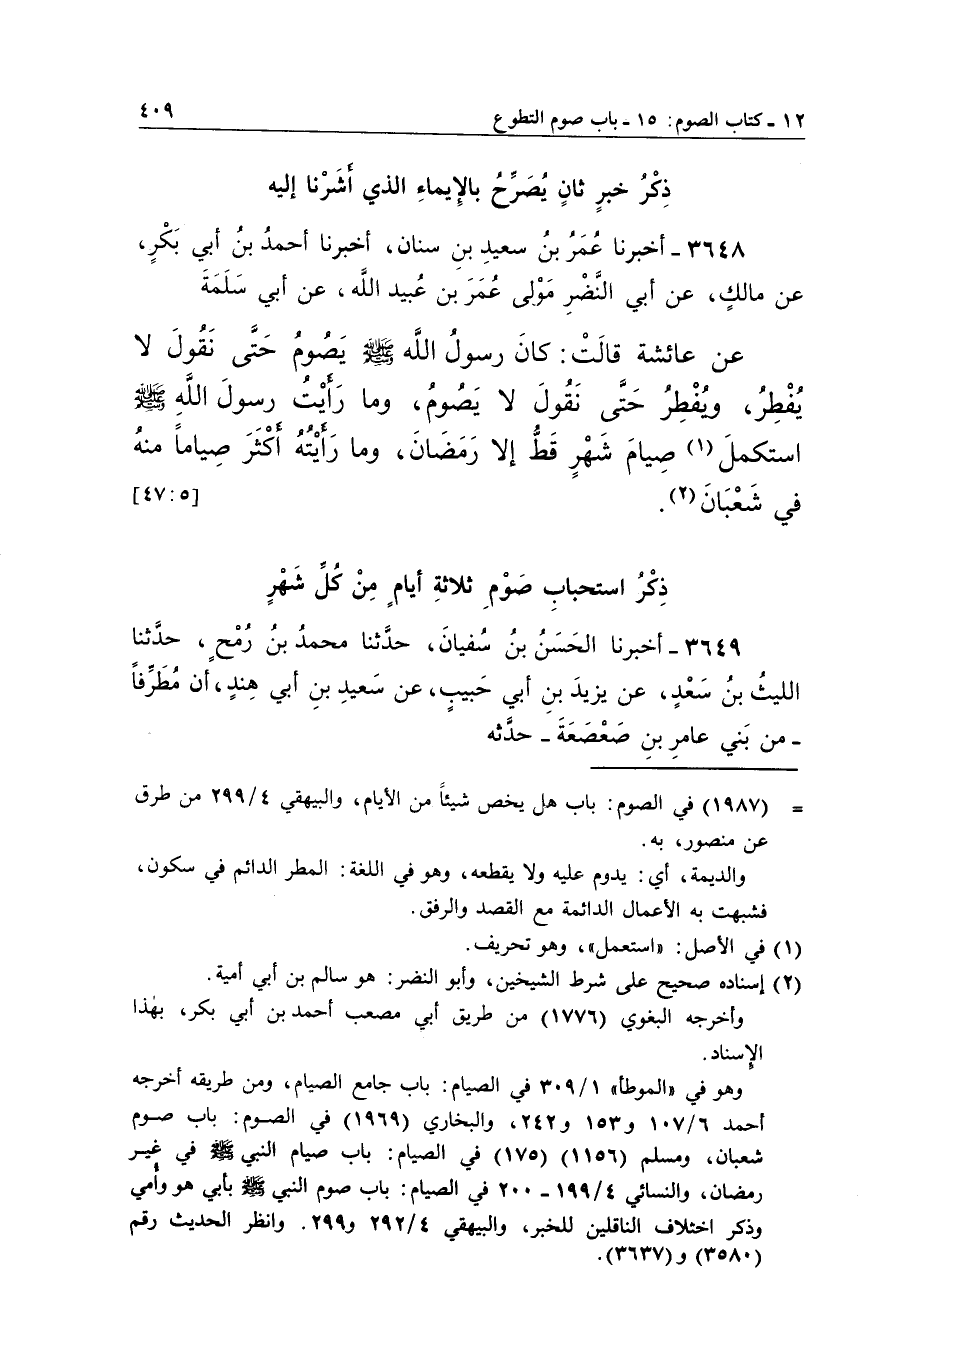 ١٢ ـ كتاب الصوم: ١٥ ـ باب صوم التطوع ٤٠٩
ذِكْرُ خبرٍ ثانٍ يُصَرِّحُ بالإِيماءِ الذي أَشَرْنا إليه
٣٦٤٨ ـ أخبرنا عُمَرُ بنُ سعيدِ بنِ سنان، أخبرنا أحمدُ بنُ أبي بَكْرٍ،
عن مالكٍ، عن أبي النَّضْرِ مَوْلى عُمَرَ بن عُبيد اللَّه، عن أبي سَلَمَةَ
عن عائشة قالَتْ: كانَ رسولُ اللَّه ﷺ يَصُومُ حَتَّى نَقُولَ لا
يُفْطِرُ، ويُفْطِرُ حَتَّى نَقُولَ لا يَصُومُ، وما رَأَيْتُ رسولَ اللَّهِ ﷺ
استكملَ(١) صِيامَ شَهْرٍ قَطُّ إلا رَمَضَانَ، وما رَأَيْتُهُ أَكْثَرَ صِياماً منهُ
في شَعْبَانَ(٢). [٤٧:٥]
ذِكْرُ استحبابِ صَوْمِ ثلاثةِ أيامٍ مِنْ كُلِّ شَهْرٍ
٣٦٤٩ ـ أخبرنا الحَسَنُ بنُ سُفيانَ، حدَّثنا محمدُ بنُ رُمْحٍ، حدَّثنا
الليثُ بنُ سَعْدٍ، عن يزيدَ بنِ أبي حَبيبٍ، عن سَعيدِ بنِ أبي هِندٍ، أن مُطَرِّفاً
ـ من بَني عامرِ بنِ صَعْصَعَةَ ـ حدَّثه
= (١٩٨٧) في الصوم: باب هل يخص شيئاً من الأيام، والبيهقي ٢٩٩/٤ من طرق
عن منصور، به.
والديمة، أي: يدوم عليه ولا يقطعه، وهو في اللغة: المطر الدائم في سكون،
فشبهت به الأعمال الدائمة مع القصد والرفق.
(١) في الأصل: «استعمل»، وهو تحريف.
(٢) إسناده صحيح على شرط الشيخين، وأبو النضر: هو سالم بن أبي أمية.
وأخرجه البغوي (١٧٧٦) من طريق أبي مصعب أحمد بن أبي بكر، بهٰذا
الإِسناد.
وهو في «الموطأ» ٣٠٩/١ في الصيام: باب جامع الصيام، ومن طريقه أخرجه
أحمد ١٠٧/٦ و١٥٣ و٢٤٢، والبخاري (١٩٦٩) في الصوم: باب صوم
شعبان، ومسلم (١١٥٦) (١٧٥) في الصيام: باب صيام النبي ﷺ في غير
رمضان، والنسائي ١٩٩/٤ ـ ٢٠٠ في الصيام: باب صوم النبي ﷺ بأبي هو وأمي
وذكر اختلاف الناقلين للخبر، والبيهقي ٢٩٢/٤ و٢٩٩. وانظر الحديث رقم
(٣٥٨٠) و(٣٦٣٧).